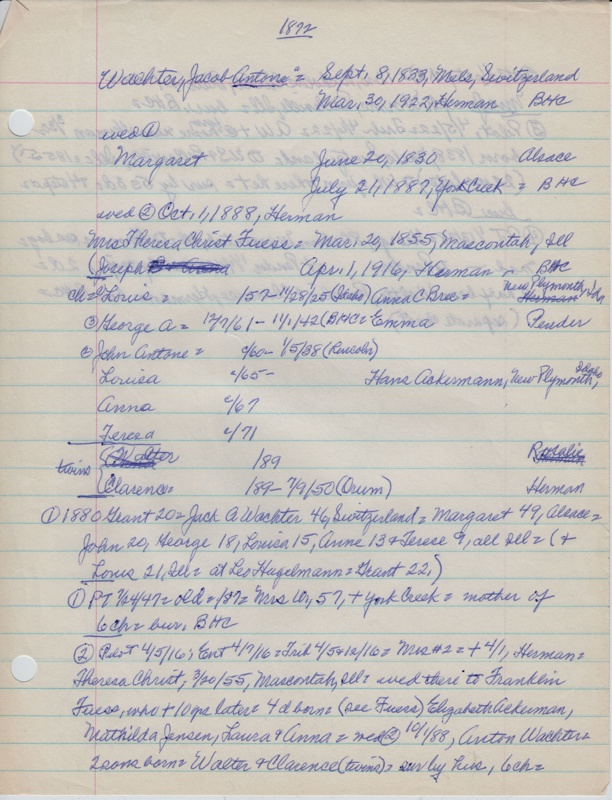 1872
Wachter, Jacob Antone = Sept. 8, 1833, Mels, Switzerland
Mar. 30, 1922, Herman BHC
wed ①
Margaret June 20, 1830 Alsace
July 21, 1887, York Creek = BHC
wed ② Oct. 1, 1888, Herman
Mrs Theresa Christ Fuess = Mar. 20, 1855, Mascoutah, Ill
(Joseph Apr. 1, 1916, Herman - BHC
ch = Louis = 157 - 11/28/25 (Idaho) Anna C Bree = New Plymouth, Ida
Herman
George A = 12/7/61 - 11/1/42 (BHC = Emma Pender
John Antone = c/60 - 1/5/38 (Lincoln)
Louisa c/65 - Hans Ackermann, New Plymouth, Idaho
Anna c/67
Teresa c/71
twins { Walter 189 Rosalie
Clarence = 189 - 7/9/50 (Orum) Herman
① 1880 Grant 20 = Jack A Wachter 46, Switzerland = Margaret 49, Alsace =
John 20, George 18, Louisa 15, Anne 13 + Terese 9, all Ill = (+
Louis 21, Ill = at Leo Hagelmann = Grant 22,)
① PT 7/24/47 = old = /87 = Mrs W, 57, + York Creek = mother of
6 ch = bur. BHC
② Pilot 4/5/16; Ent 4/7/16 = Trib 4/5+12/16 = Mrs #2 = + 4/1, Herman =
Theresa Christ, 3/20/55, Mascoutah, Ill = wed there to Franklin
Fuess, who + 10 yrs later = 4 d born = (see Fuess) Elizabeth Ackerman,
Mathilda Jensen, Laura + Anna = wed ② 10/1/88, Anton Wachter +
2 sons born = Walter + Clarence (twins) = sur by hus, 6 ch =